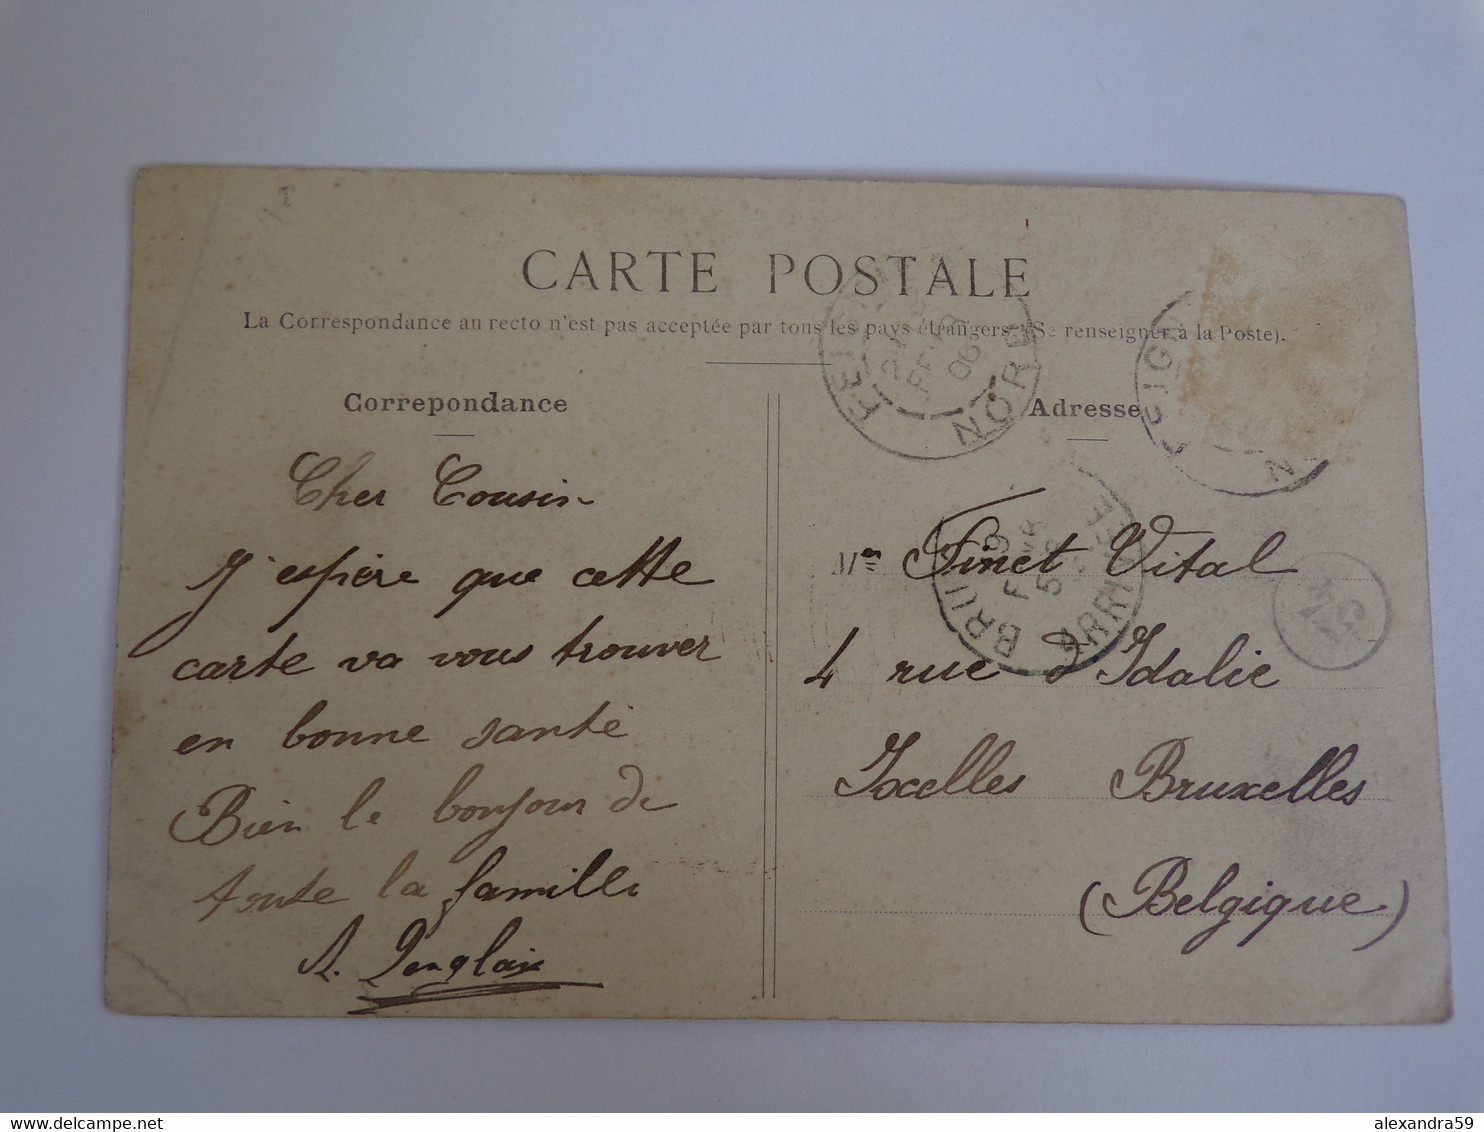 CARTE POSTALE
La Correspondance au recto n'est pas acceptée par tous les pays étrangers (Se renseigner à la Poste).
Correpondance
Cher Cousin
J'espère que cette
carte va vous trouver
en bonne santé
Bien le bonjour de
toute la famille
A.
Adresse
Mr Finet Vital
4 rue d'Idalie
Ixelles Bruxelles
(Belgique)
FEIG
FEVR
06
NORD
EIGN
N
BRU
9
5
ARRIVEE
54
alexandra59